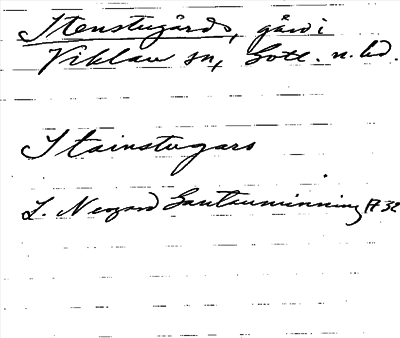 Stenstugårds, gård i
Viklau sn, Gotl. n. hd.
Stainstugars
L. Neogard Gautauminning 1732